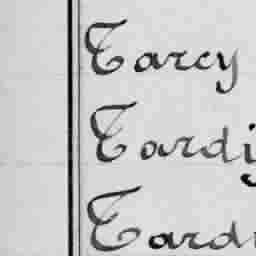 Tarcy
Tardi
Tard